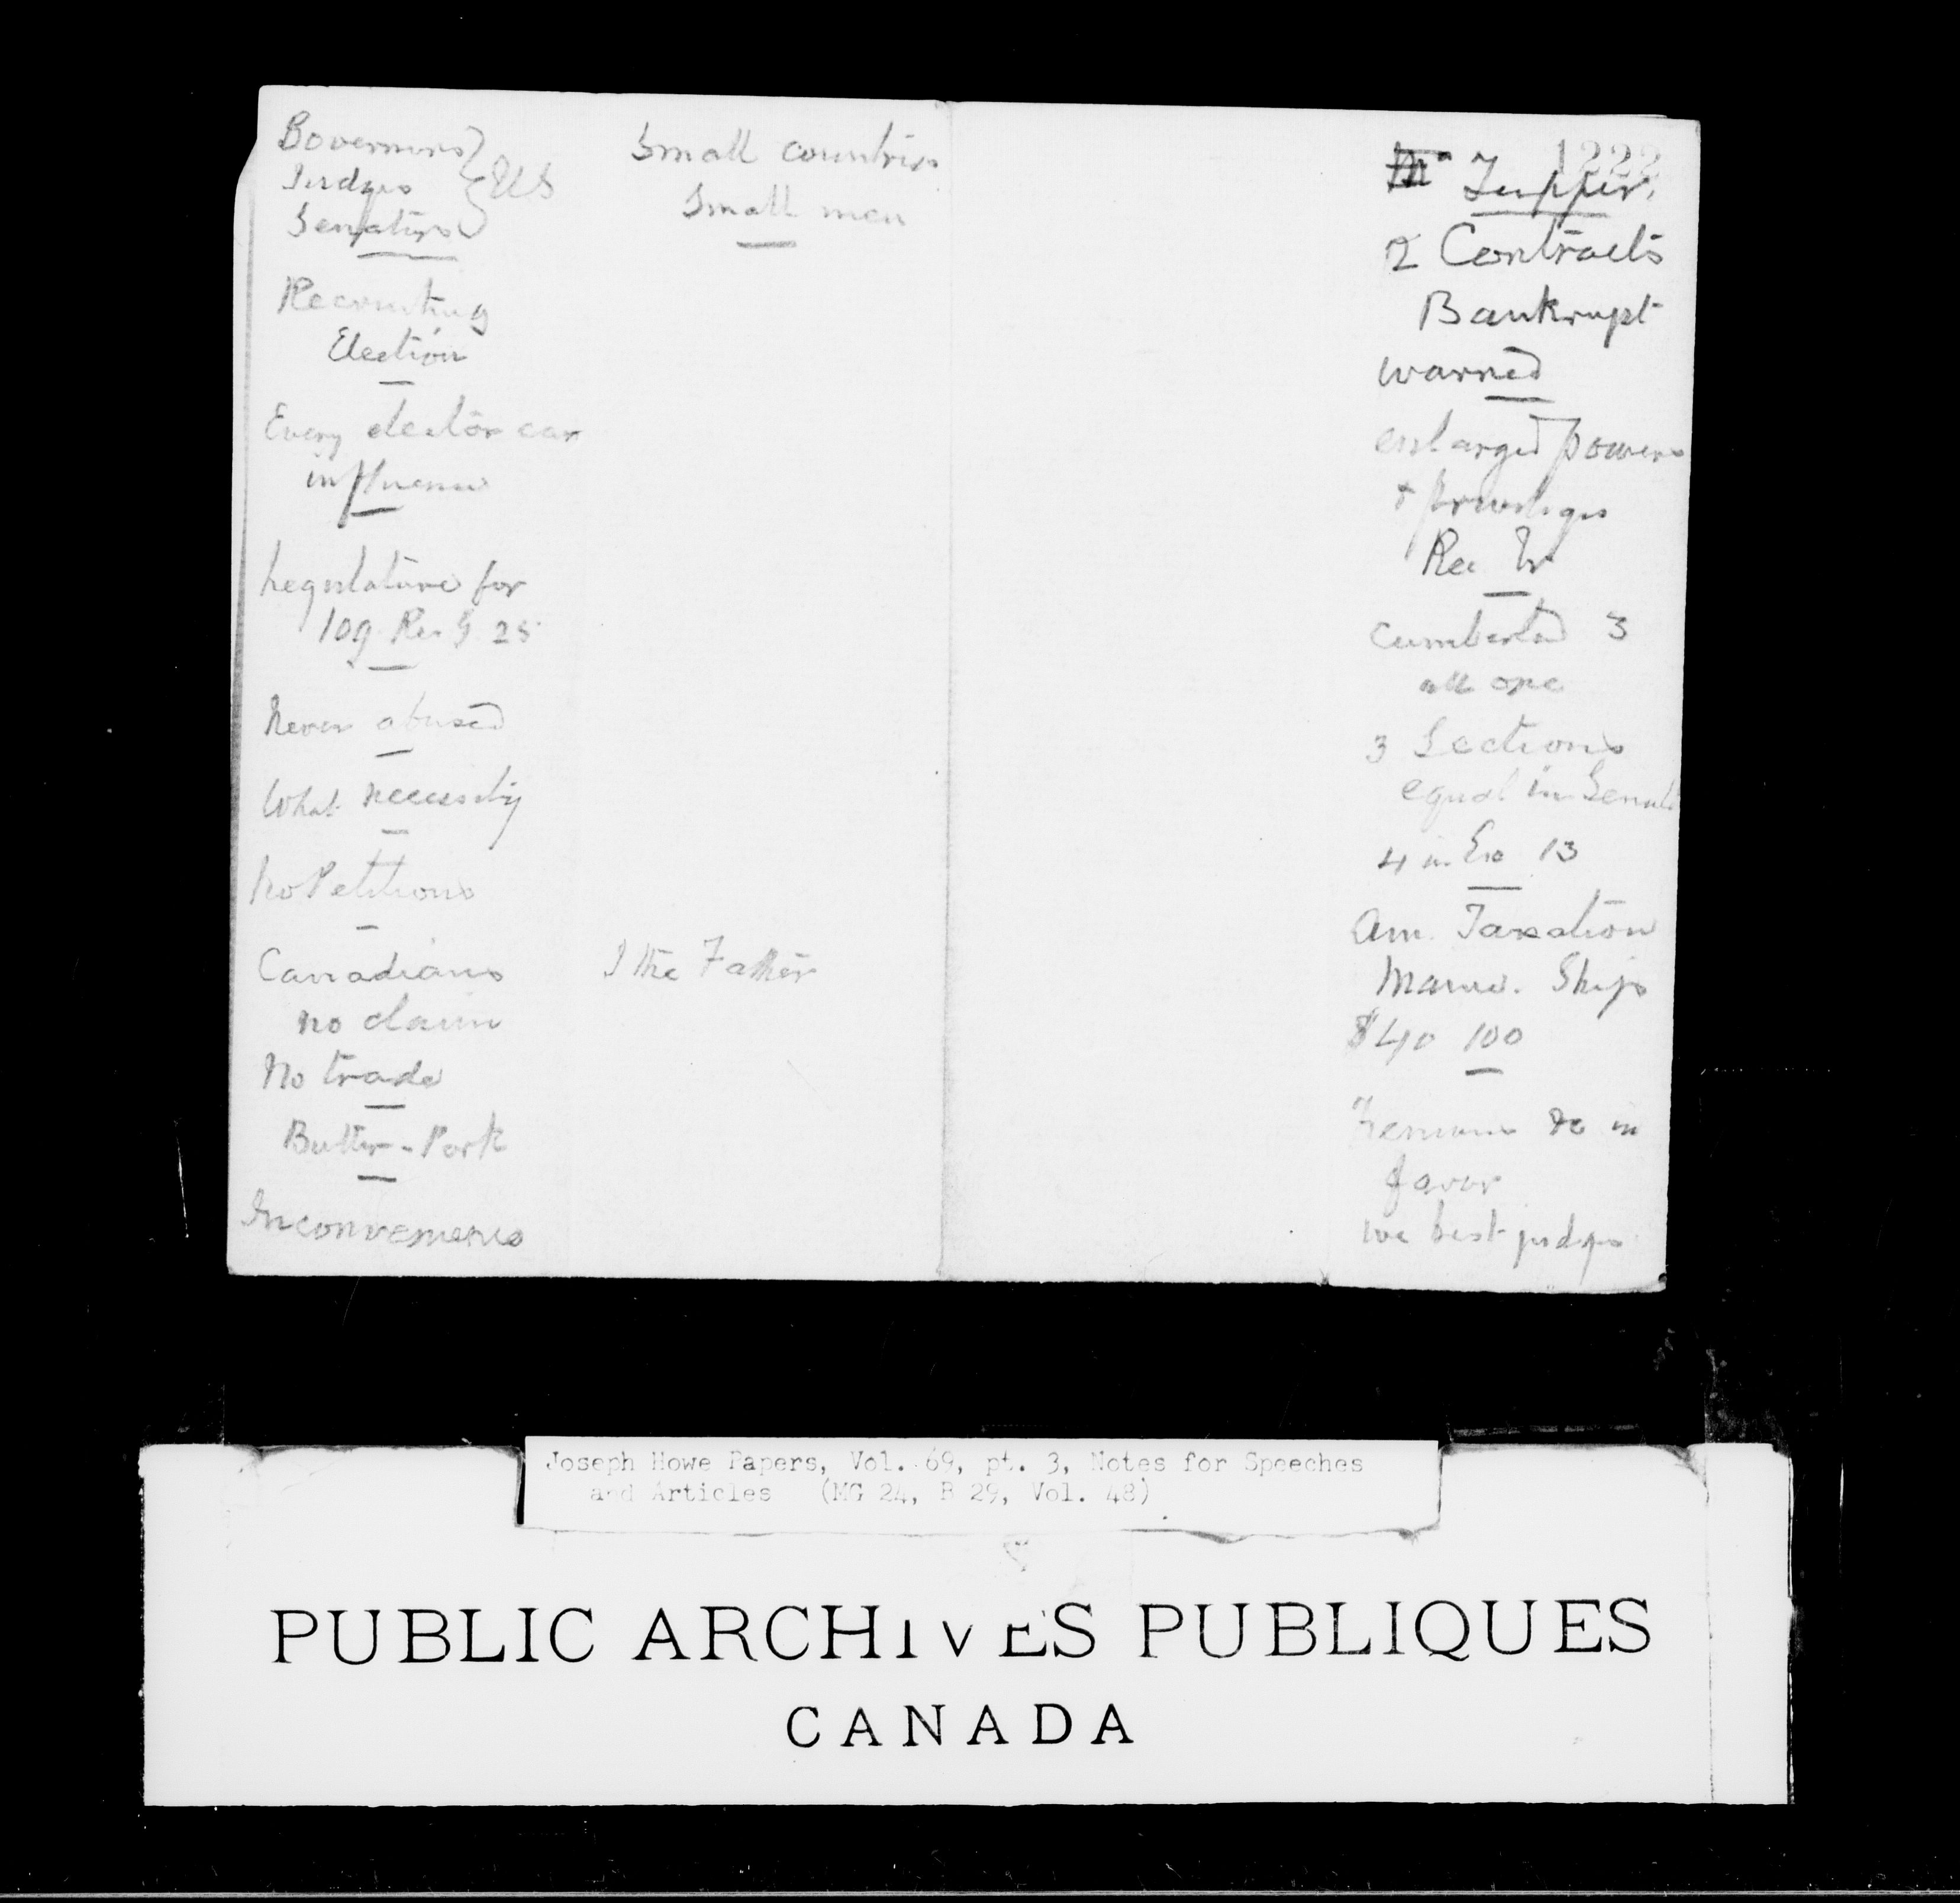 Governors
Judges
Senators
U S
Recruiting
Election
Every elector can
influence
Legislature for
109. Rev G. 25
Never abused
What necessity
No Petitions
Canadians
no claim
No trade
Butter - Pork
Inconvenience
Small countries
Small men
I the Father
1222
Tupper.
2 Contracts
Bankrupt
warned
enlarged powers
& privileges
Rec
Cumberland 3
all one
3 Sections
equal in Senate
4 in 13
Am. Taxation
Ships
$40 100
in
favor
we best judges
Joseph Howe Papers, Vol. 69, pt. 3, Notes for Speeches
and Articles (MG 24, B 29, Vol. 48)
PUBLIC ARCHIVES PUBLIQUES
CANADA